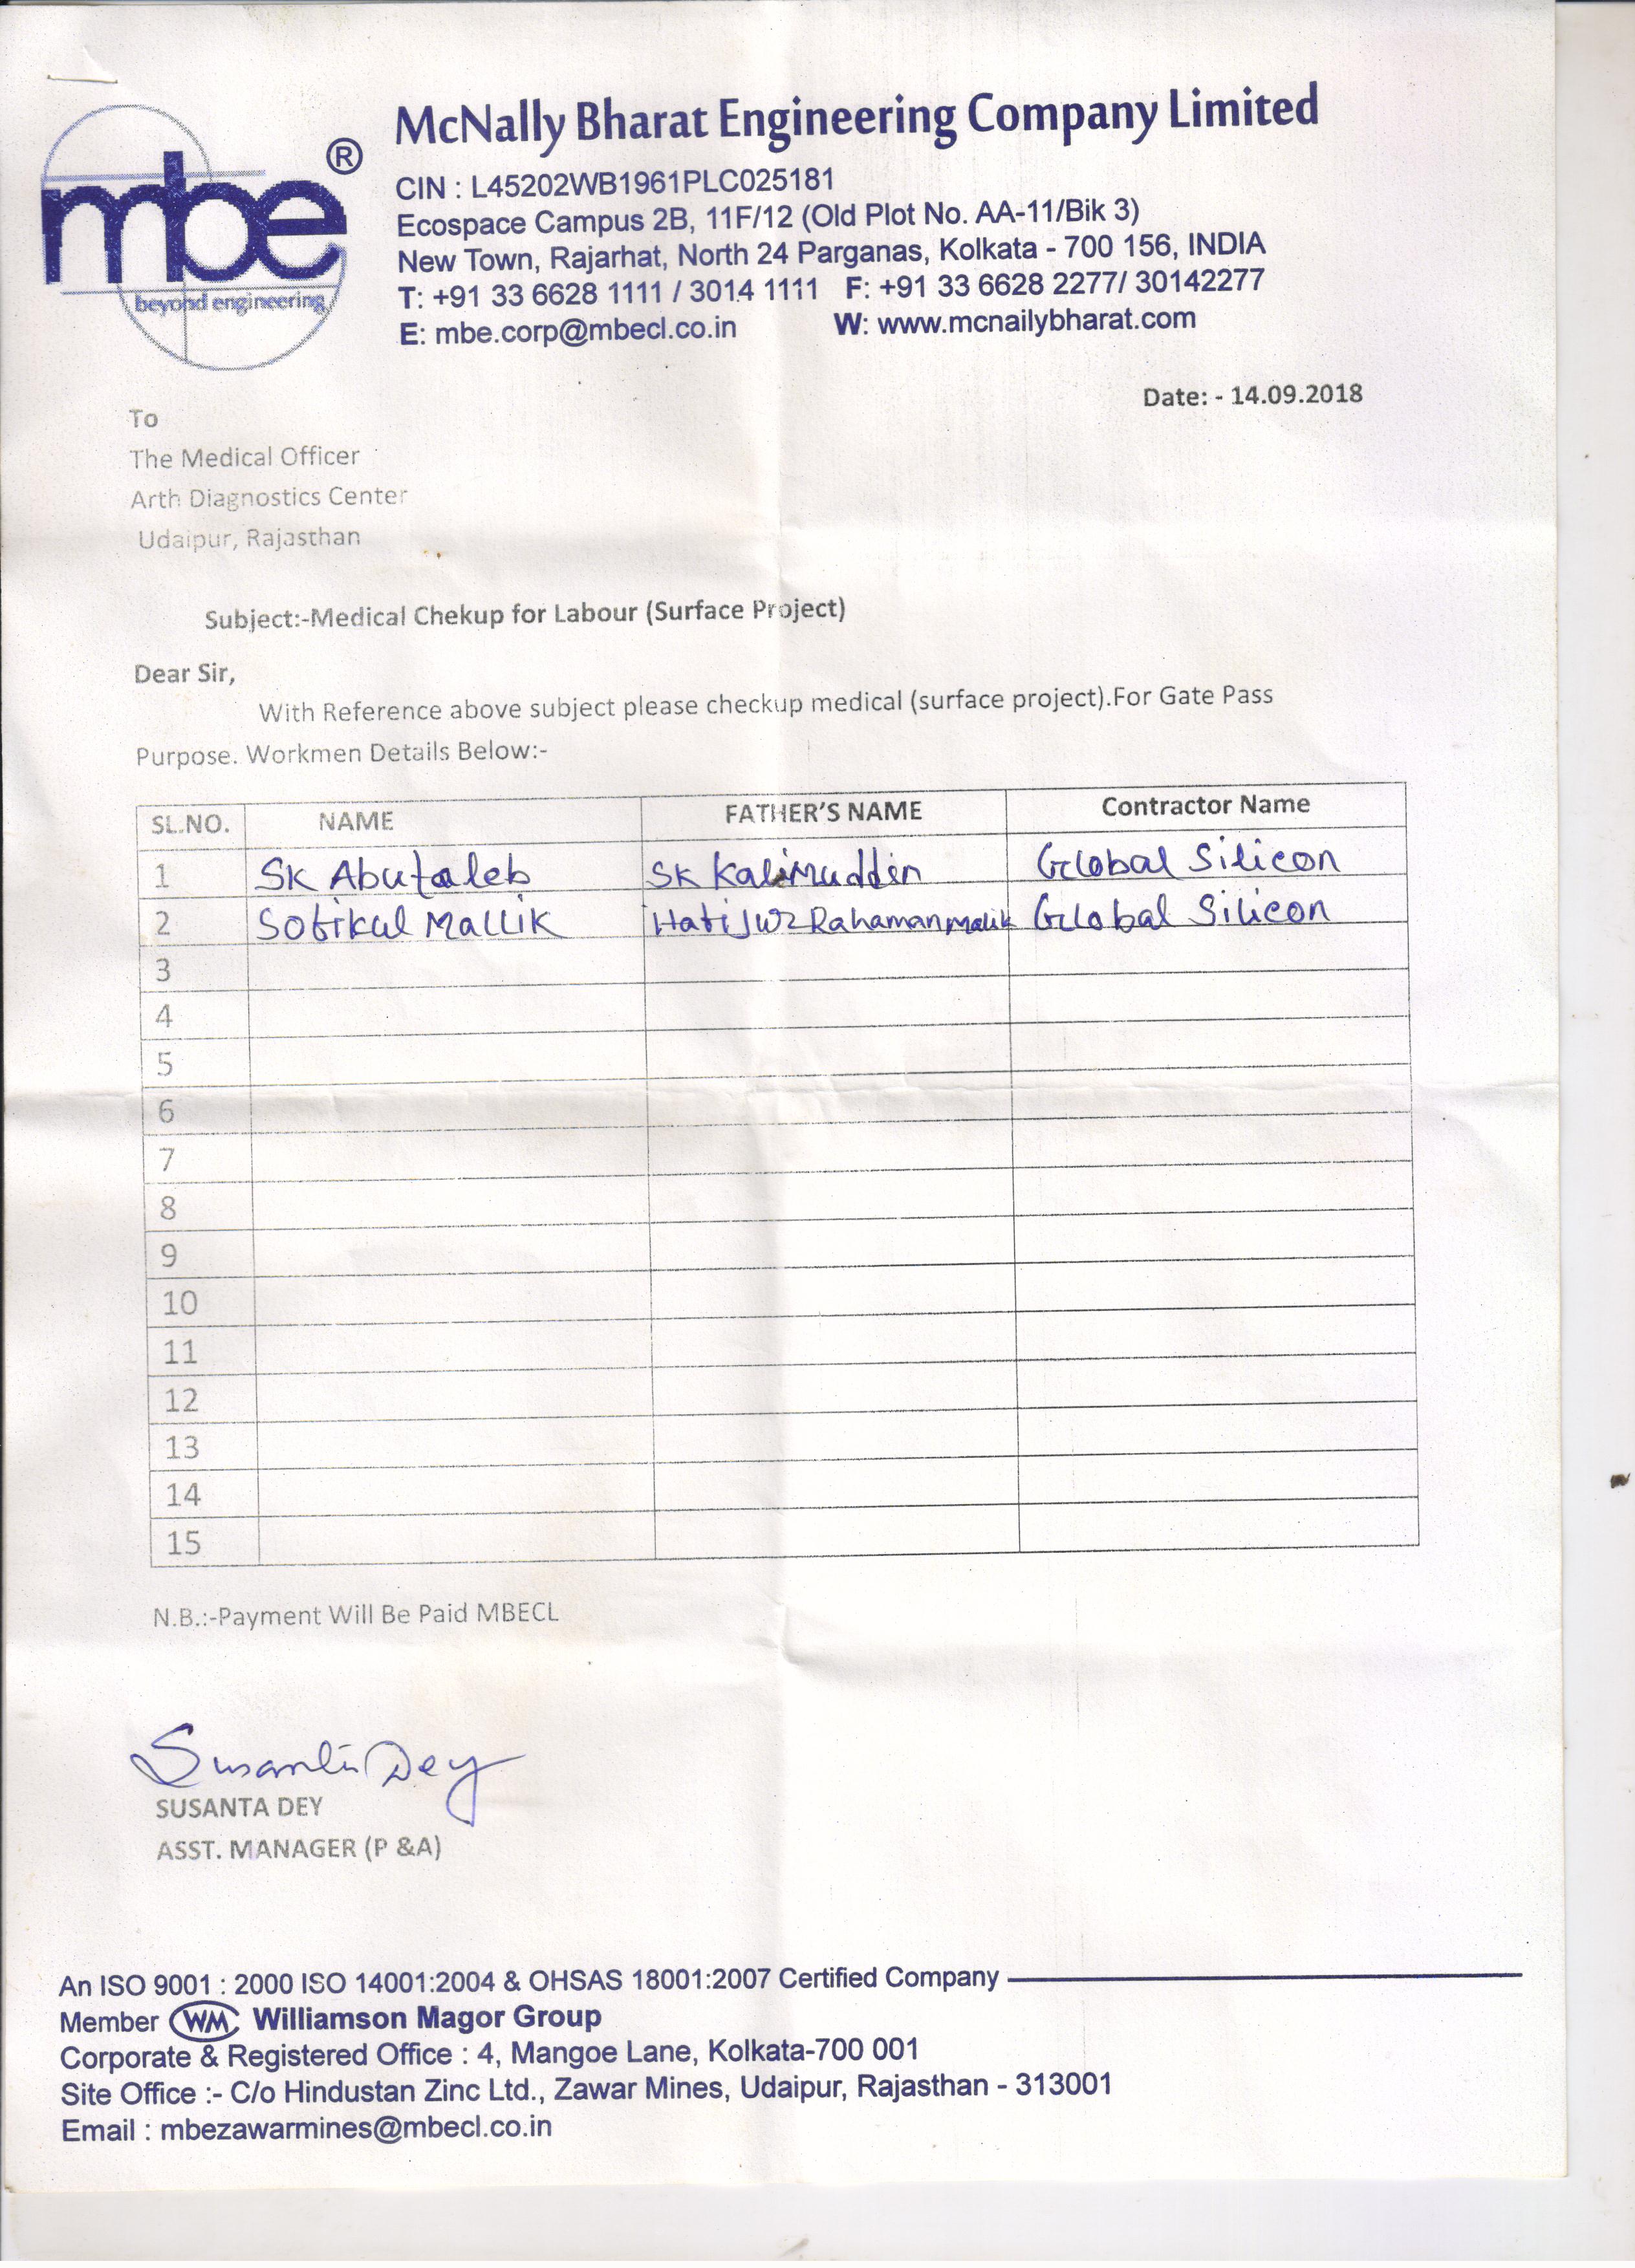 mbe ®
beyond engineering
McNally Bharat Engineering Company Limited
CIN : L45202WB1961PLC025181
Ecospace Campus 2B, 11F/12 (Old Plot No. AA-11/Bik 3)
New Town, Rajarhat, North 24 Parganas, Kolkata - 700 156, INDIA
T: +91 33 6628 1111 / 3014 1111 F: +91 33 6628 2277/ 30142277
E: mbe.corp@mbecl.co.in W: www.mcnailybharat.com
Date: - 14.09.2018
To
The Medical Officer
Arth Diagnostics Center
Udaipur, Rajasthan
Subject:-Medical Chekup for Labour (Surface Project)
Dear Sir,
With Reference above subject please checkup medical (surface project).For Gate Pass
Purpose. Workmen Details Below:-
SL.NO. NAME FATHER'S NAME Contractor Name
1 SK Abutaleb SK Kalimuddin Global Silicon
2 Sofikul Mallik Rahaman Malik Global Silicon
3
4
5
6
7
8
9
10
11
12
13
14
15
N.B.:-Payment Will Be Paid MBECL
Susanta Dey
SUSANTA DEY
ASST. MANAGER (P &A)
An ISO 9001 : 2000 ISO 14001:2004 & OHSAS 18001:2007 Certified Company
Member WM Williamson Magor Group
Corporate & Registered Office : 4, Mangoe Lane, Kolkata-700 001
Site Office :- C/o Hindustan Zinc Ltd., Zawar Mines, Udaipur, Rajasthan - 313001
Email : mbezawarmines@mbecl.co.in